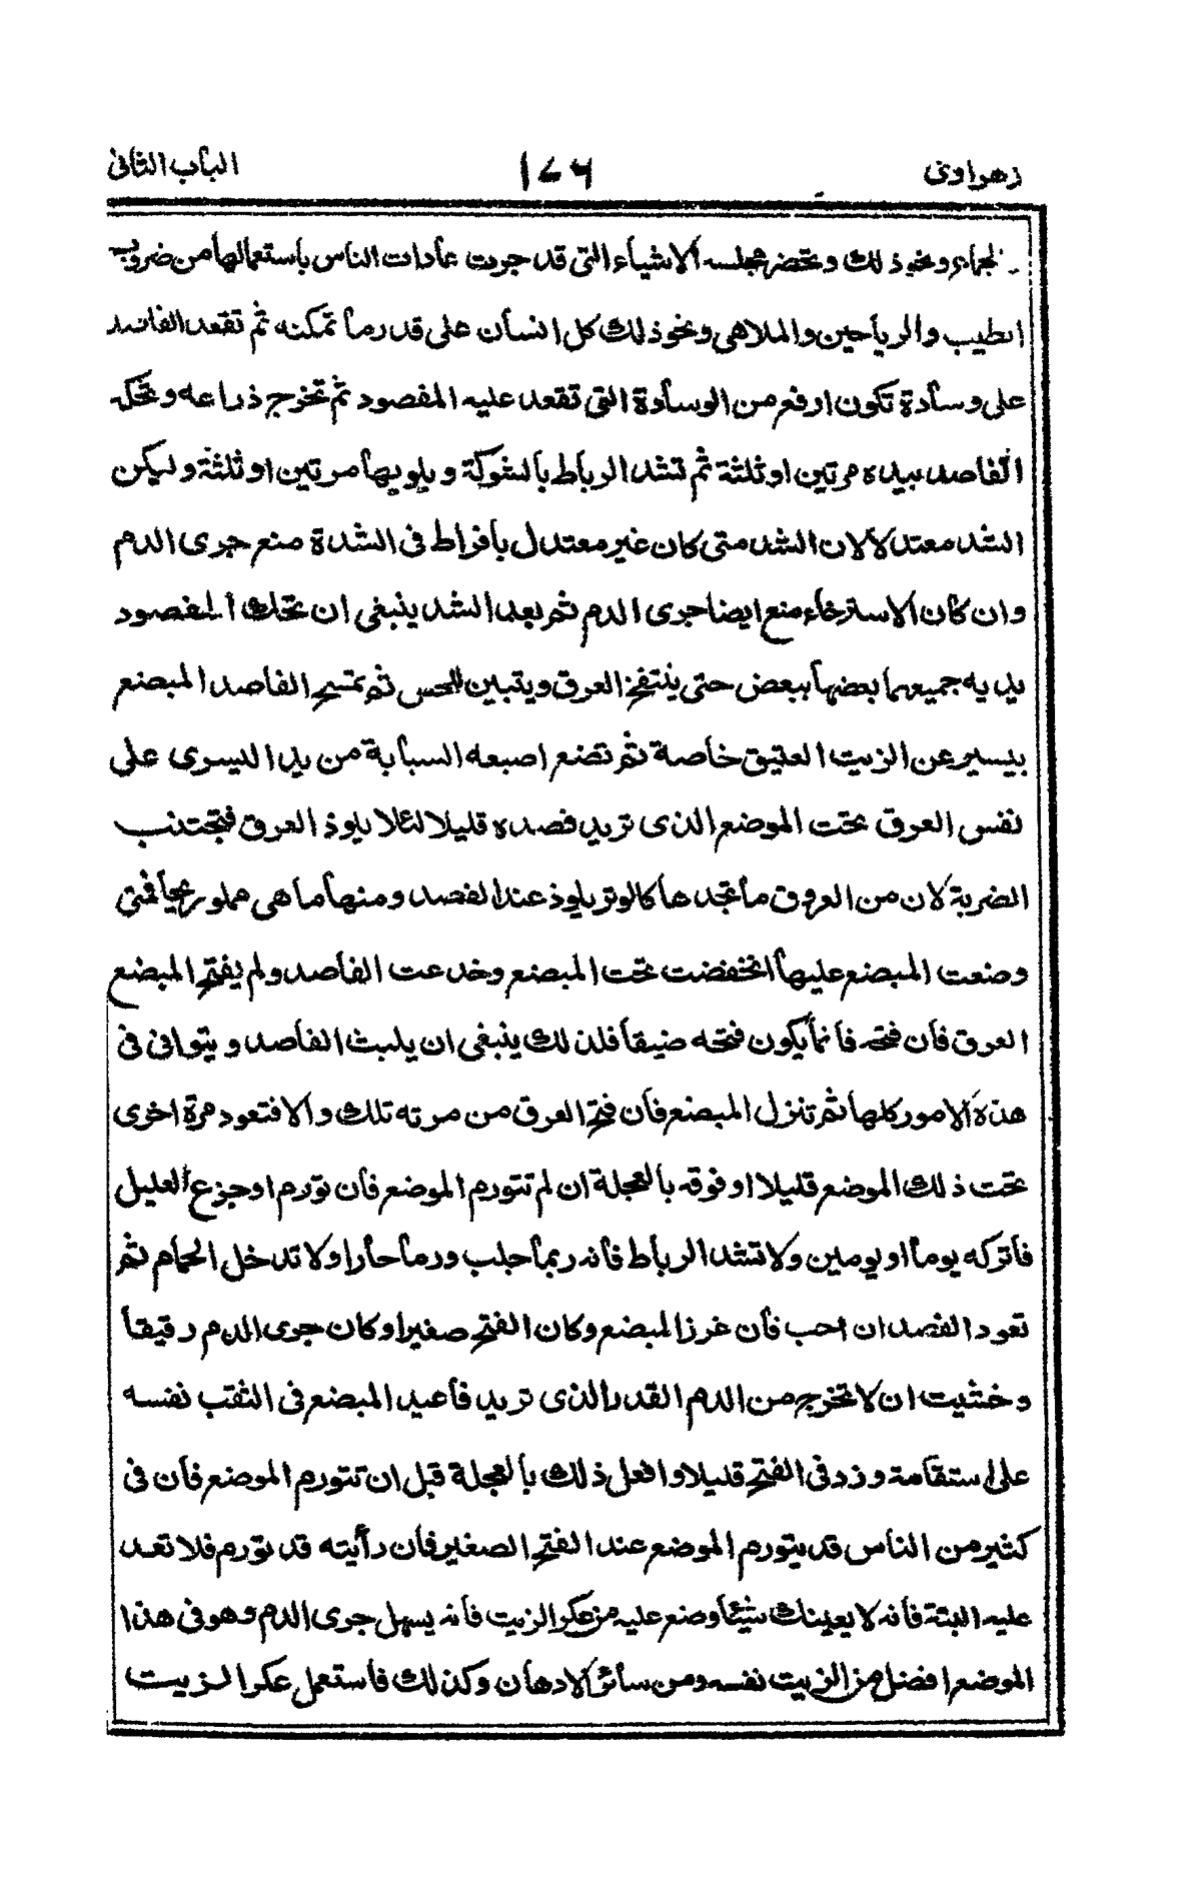 زهراوى ١٧٦ الباب الثانى
الجماع ونحو ذلك ويحضر مجلسه الاشياء التى قد جرت عادات الناس باستعمالها من ضروب
الطيب والرياحين والملاهى ونحو ذلك كل انسان على قدر ما تمكنه ثم تقعد الفاصد
على وسادة تكون ارفع من الوسادة التى تقعد عليه المفصود ثم تخرج ذراعه ويحكه
الفاصد بيده مرتين او ثلثة ثم تشد الرباط بالشوكة ويلويها مرتين او ثلثة وليكن
الشد معتدلا لان الشد متى كان غير معتدل بافراط فى الشدة منع جرى الدم
وان كان الاسترخاء منع ايضا جرى الدم ثم بعد الشد ينبغى ان تحك المفصود
يديه جميعهما بعضها ببعض حتى ينتفخ العرق ويتبين للحس ثم تمسح الفاصد المبضع
بيسير عن الزيت العتيق خاصة ثم تضع اصبعه السبابة من يد اليسرى على
نفس العرق تحت الموضع الذى تريد فصده قليلا لئلا يلوذ العرق فتجتنب
الضربة لان من العروق ما تجدها كالوتر يلوذ عند الفصد ومنها ما هى مملو ريحا فمتى
وضعت المبضع عليها انخفضت تحت المبضع وخدعت الفاصد ولم يفتح المبضع
العرق فان فتحه فانما يكون فتحه ضيقا فلذلك ينبغى ان يلبث الفاصد ويتوانى فى
هذه الامور كلها ثم تنزل المبضع فان فتح العرق من مرته تلك والا فتعود مرة اخرى
تحت ذلك الموضع قليلا او فوقه بالعجلة ان لم تتورم الموضع فان تورم او جزع العليل
فاتركه يوما او يومين ولا تشد الرباط فانه ربما جلب ورما حارا ولا تدخل الحمام ثم
تعود الفصد ان احب فان غرز المبضع وكان الفتح صغيرا وكان جرى الدم رقيقا
وخشيت ان لا تخرج من الدم القدر الذى تريد فاعيد المبضع فى الثقب نفسه
على استقامة وزد فى الفتح قليلا وافعل ذلك بالعجلة قبل ان تتورم الموضع فان فى
كثير من الناس قد يتورم الموضع عند الفتح الصغير فان رأيته قد تورم فلا تعد
عليه البتة فانه لا يعينك شيئا وضع عليه من عكر الزيت فانه يسهل جرى الدم وهو فى هذا
الموضع افضل من الزيت نفسه ومن سائر الادهان وكذلك فاستعمل عكر الزيت